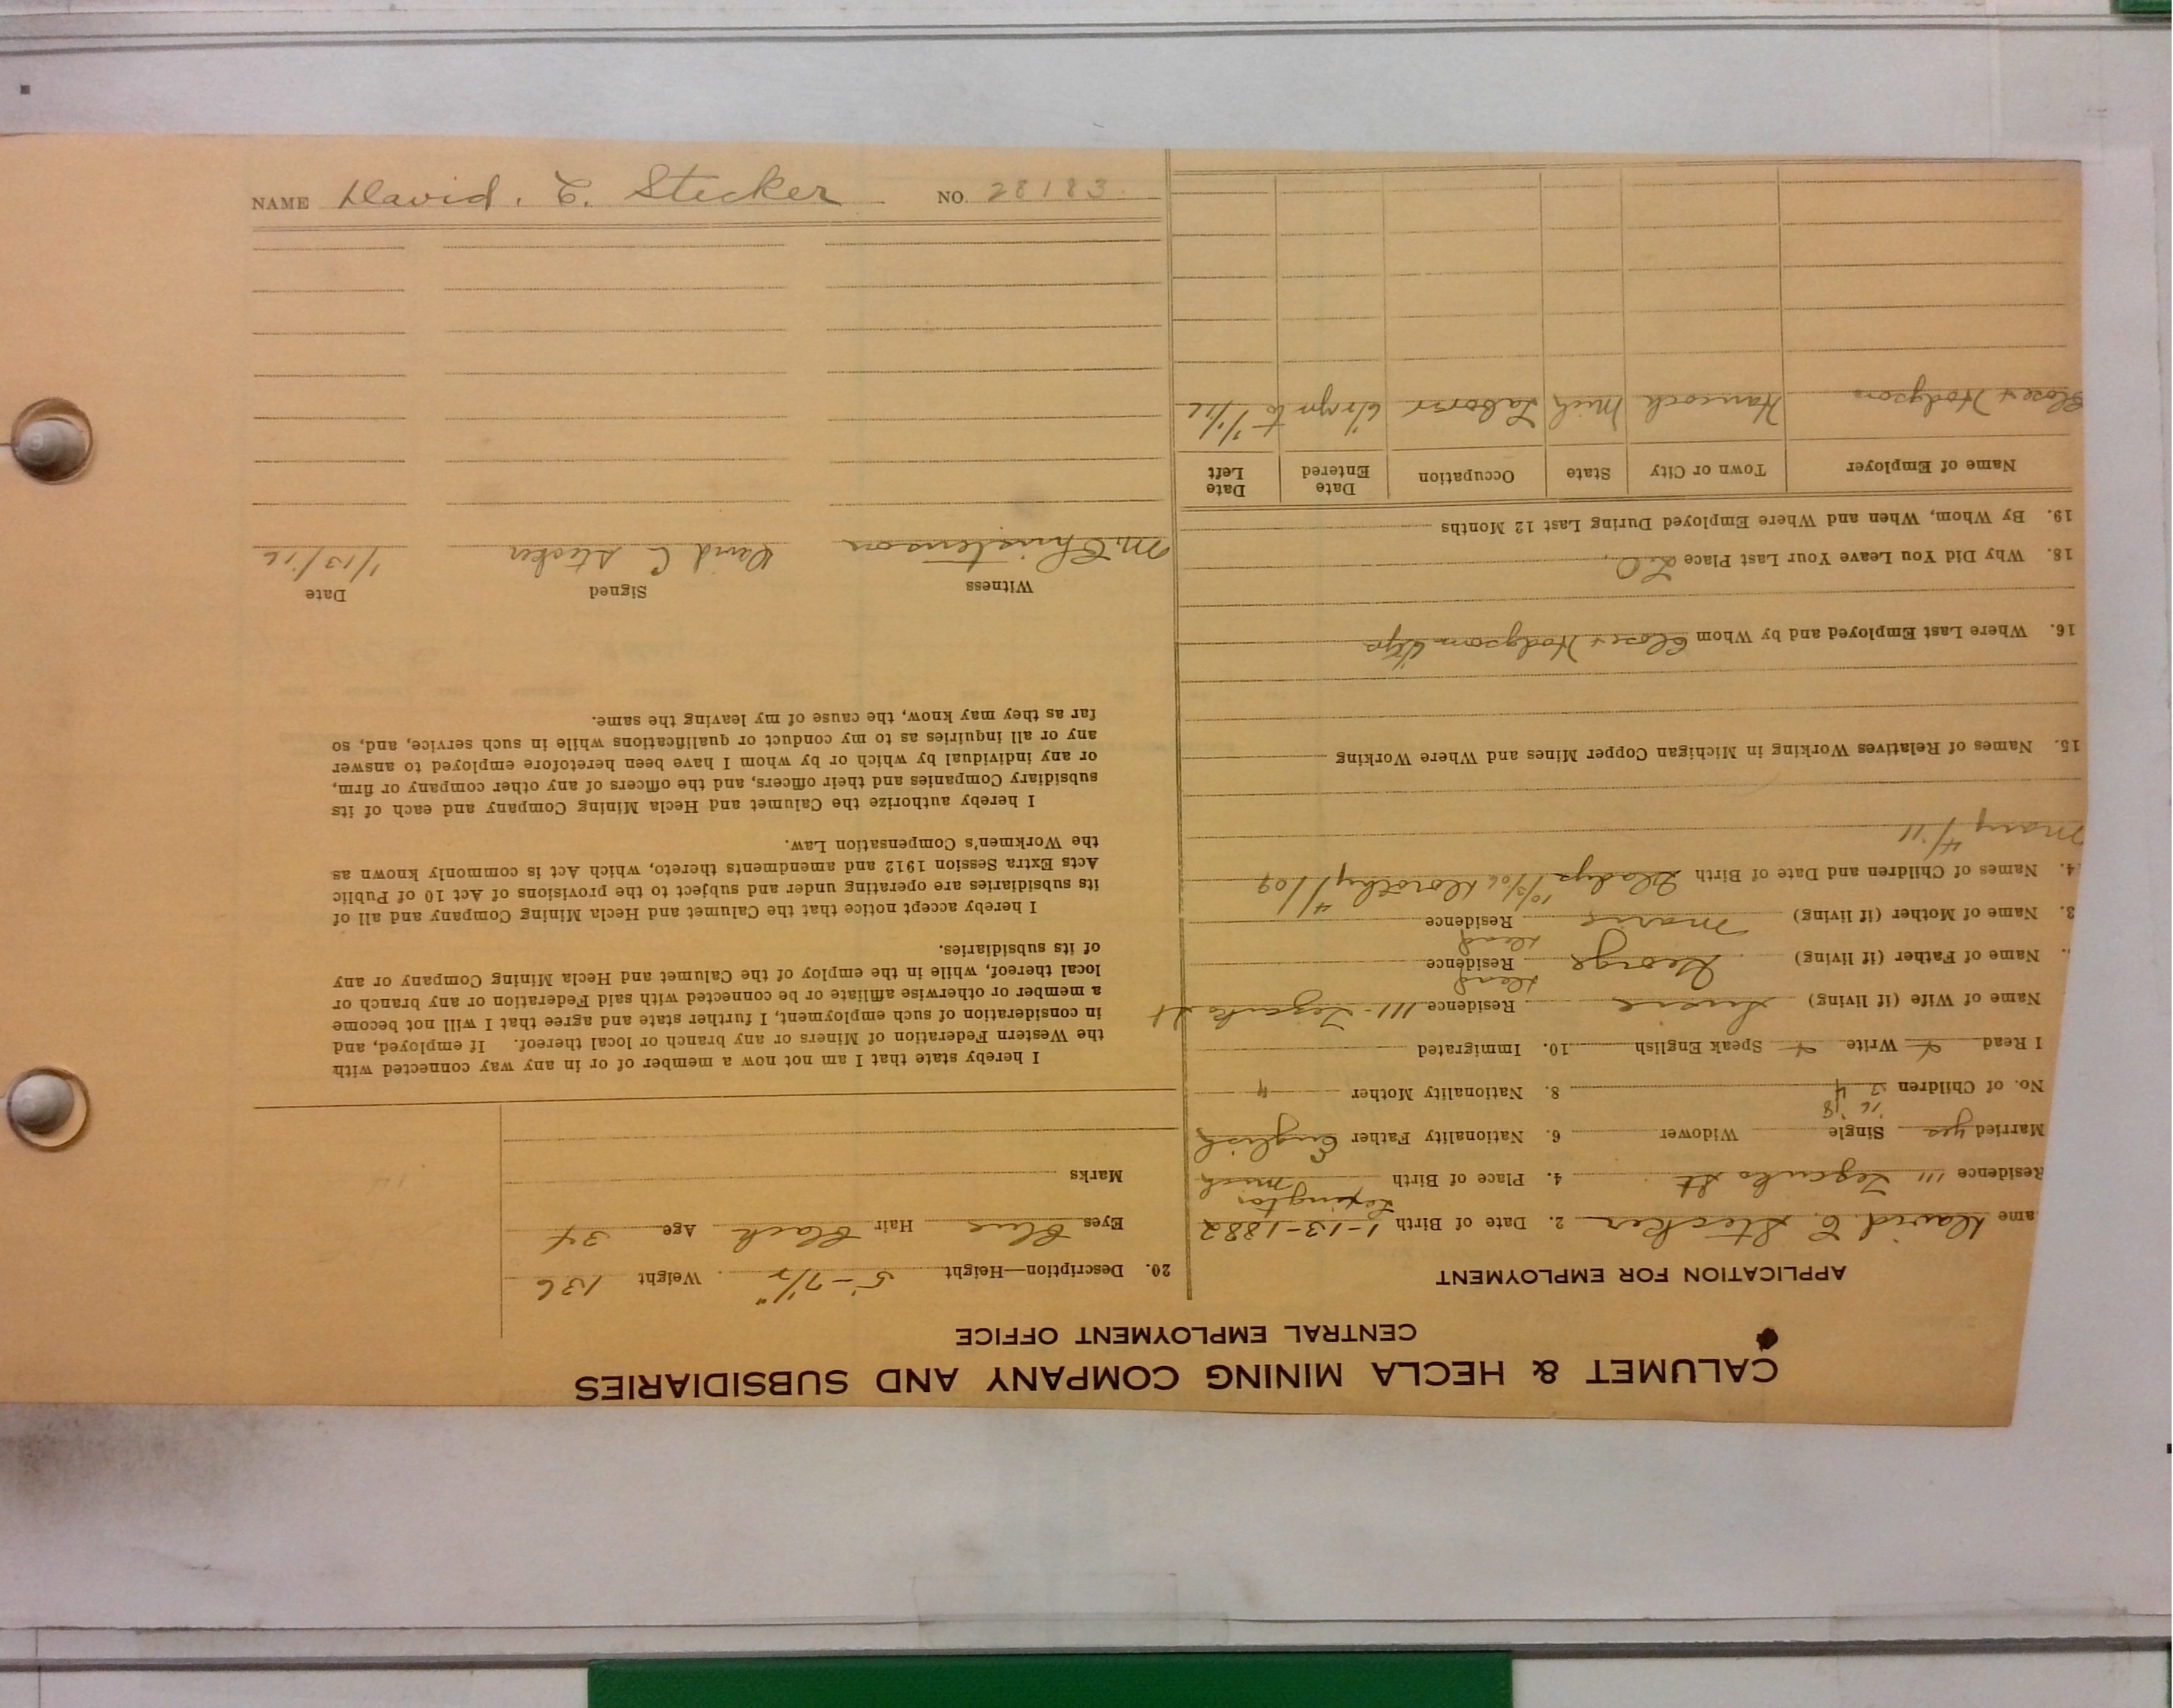 NAME David. C. Stecker NO. 28183
CALUMET & HECLA MINING COMPANY AND SUBSIDIARIES
CENTRAL EMPLOYMENT OFFICE
APPLICATION FOR EMPLOYMENT
ame David C. Stecker 2. Date of Birth 1-13-1882
Residence 111 Tezcuko St 4. Place of Birth Lexington Mich
Married yes Single Widower 6. Nationality Father English
No. of Children 8. Nationality Mother "
I Read Write Speak English 10. Immigrated
Name of Wife (if living) Residence 111-Tezcuko St
Name of Father (if living) George Residence Dead
3. Name of Mother (if living) Marie Residence Dead
4. Names of Children and Date of Birth Gladys 10/5/06 Dorothy 4/1/09
Mary 4/11
15. Names of Relatives Working in Michigan Copper Mines and Where Working
16. Where Last Employed and by Whom Close & Hodgson
18. Why Did You Leave Your Last Place
19. By Whom, When and Where Employed During Last 12 Months
Name of Employer Town or City State Occupation Date Entered Date Left
Close & Hodgson Hancock Mich Laborer to 1/1/16
20. Description—Height 5'-7 1/2" Weight 136
Eyes Blue Hair Black Age 34
Marks
I hereby state that I am not now a member of or in any way connected with
the Western Federation of Miners or any branch or local thereof. If employed, and
in consideration of such employment, I further state and agree that I will not become
a member or otherwise affiliate or be connected with said Federation or any branch or
local thereof, while in the employ of the Calumet and Hecla Mining Company or any
of its subsidiaries.
I hereby accept notice that the Calumet and Hecla Mining Company and all of
its subsidiaries are operating under and subject to the provisions of Act 10 of Public
Acts Extra Session 1912 and amendments thereto, which Act is commonly known as
the Workmen's Compensation Law.
I hereby authorize the Calumet and Hecla Mining Company and each of its
subsidiary Companies and their officers, and the officers of any other company or firm,
or any individual by which or by whom I have been heretofore employed to answer
any or all inquiries as to my conduct or qualifications while in such service, and, so
far as they may know, the cause of my leaving the same.
Witness Signed Date
M. Christenson David C Stecker 1/13/16